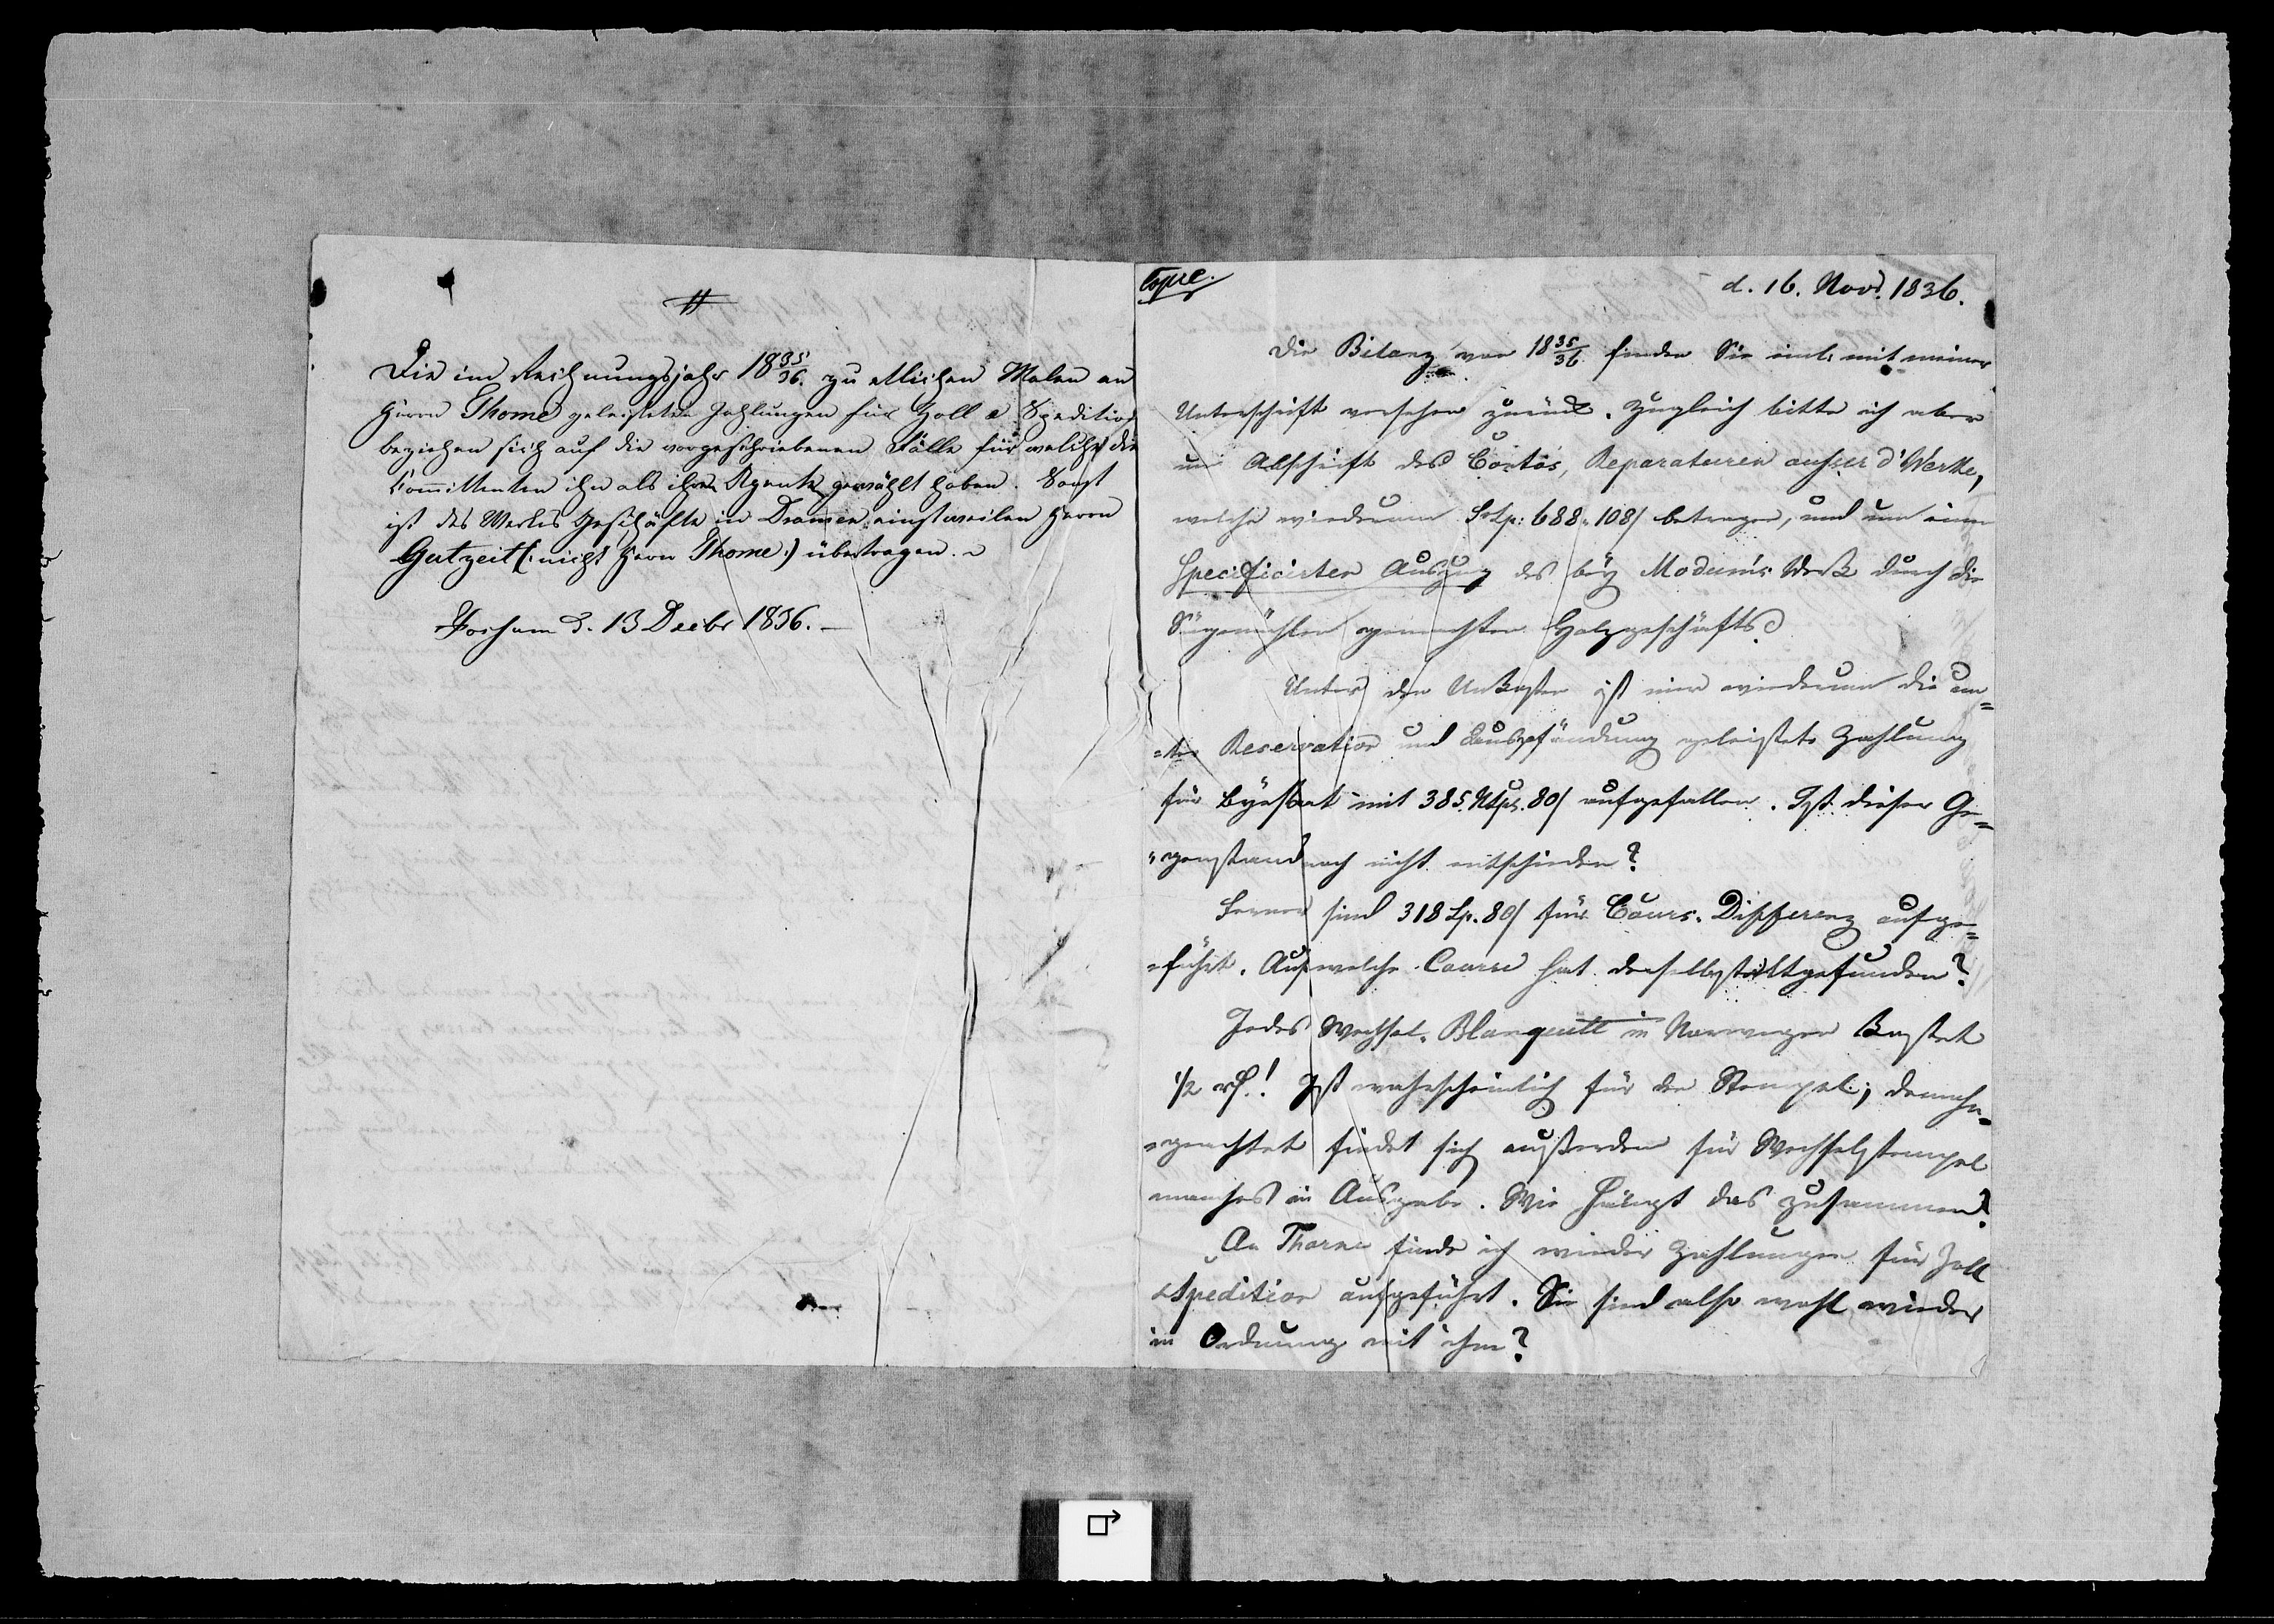 #
Die im Rechnungsjahr 18 35/36. zu etlichen Malen an
Herrn Thome geleisteten Zahlungen für Zoll & Spedition
beziehen sich auf die vorgeschriebenen Fälle für welche die
Committenten ihn als ihren Agenten gewählt haben. Sonst
ist des Werkes Geschäfte in Dramen einstweilen Herrn
Gutzeit (: nicht Herrn Thome :) übertragen.
Fossum d. 13 Decbr 1836.
Copie.
d. 16. Novr. 1836.
Die Bilanz von 18 35/36 finden Sie einl. mit meiner
Unterschrift versehen zurück. Zugleich bitte ich aber
um Abschrift des Contos, Reparaturen ausser d' Werke,
welche wiederum 688. 108/ betragen, und um einen
specificirten Auszug des bey Modum's Werk durch die
Sägemühlen gemachten Holzgeschäfts.
Unter den Unkosten ist mir wiederum die un=
=ter Reservation und geleistete Zahlung
für mit 385. 80/ aufgefallen. Ist dieser Ge=
=genstand noch nicht entschieden?
Ferner sind 318 Sp. 80/ für Cours. Differenz aufge=
=führt. Auf welche Course hat dieselbe stattgefunden?
Jedes Wechsel. Blanquett in Norwegen kostet
1/2 ! Ist wahrscheinlich für den Stempel; demohn=
=geachtet findet sich außerdem für Wechselstempel
manches in Ausgabe. Wie hängt das zusammen?
An Thome finde ich wieder Zahlungen für Zoll
& Spedition aufgeführt. Sie sind also wohl wieder
in Ordnung mit ihm?